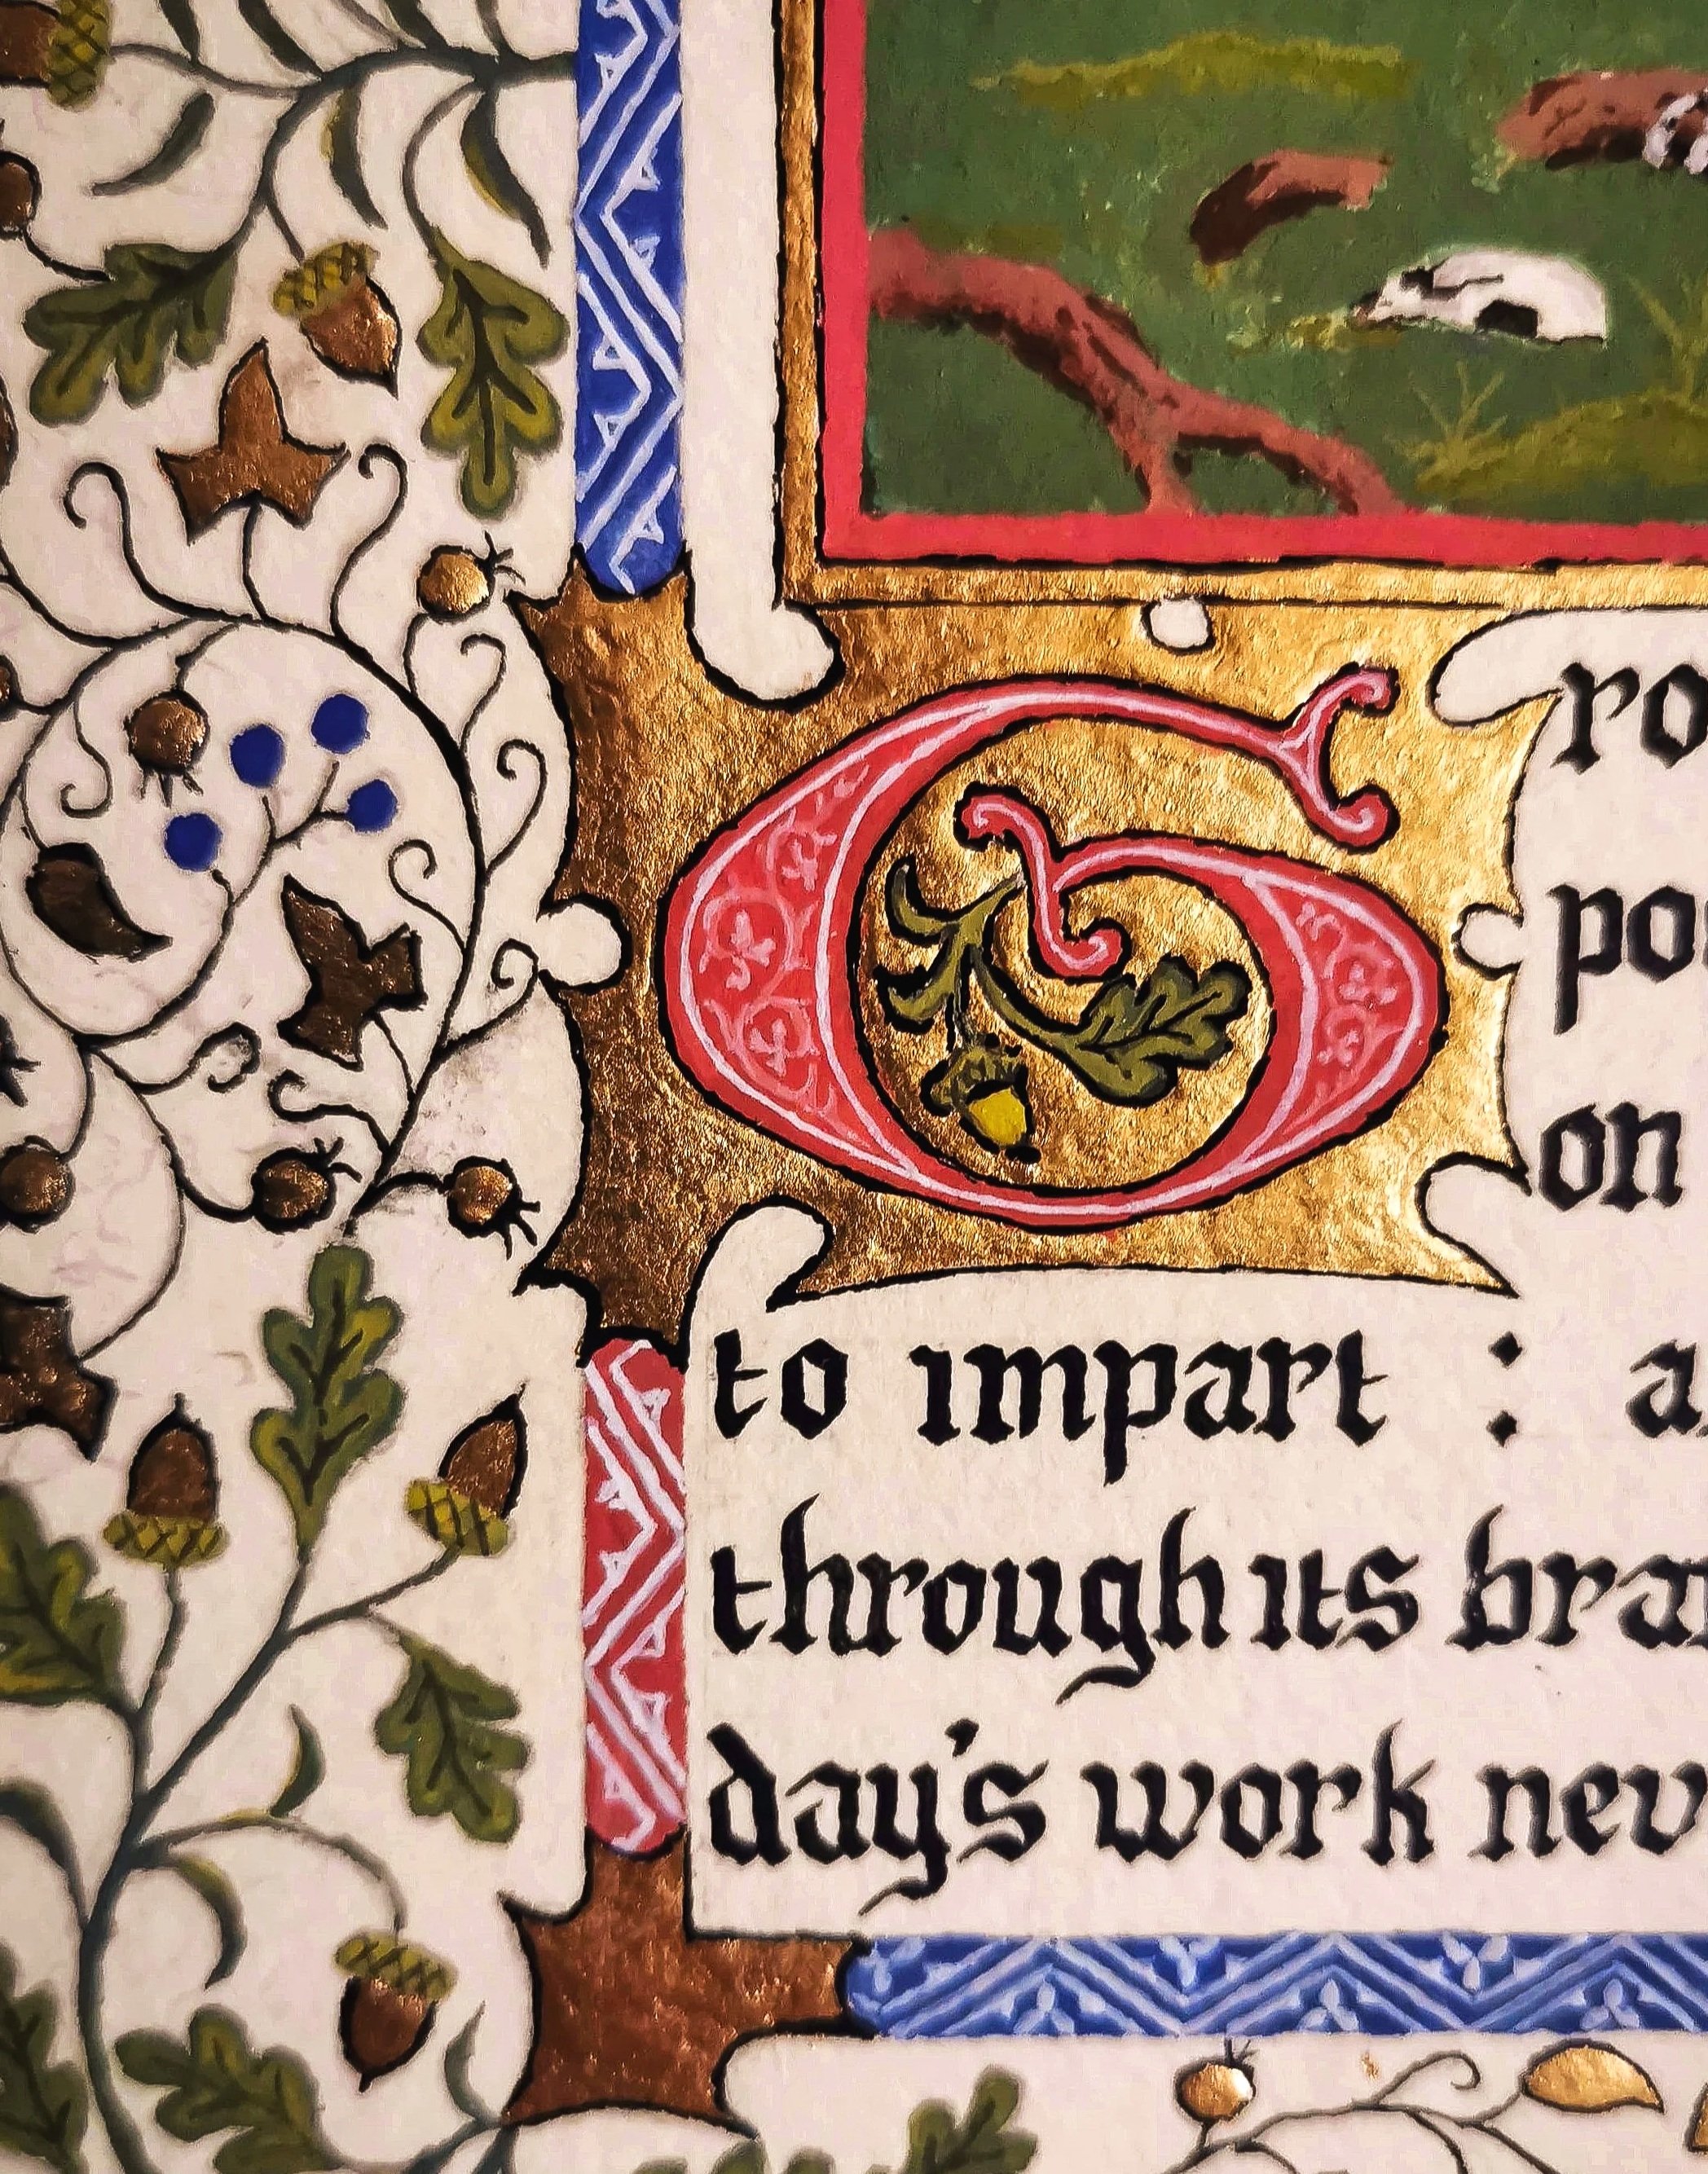 Gro
po
on
to impart : a
through its bra
day's work nev